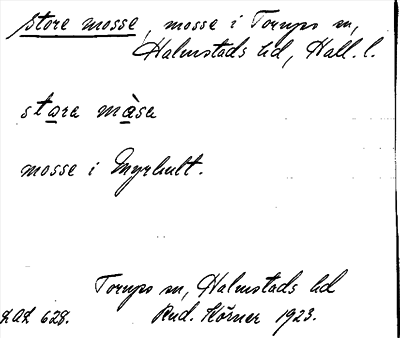 store mosse, mosse i Torups sn,
Halmstads hd, Hall. l.
stara màsa
mosse i Myrhult.
Torups sn, Halmstads hd
LAL 628. Rud. Hörner 1923.